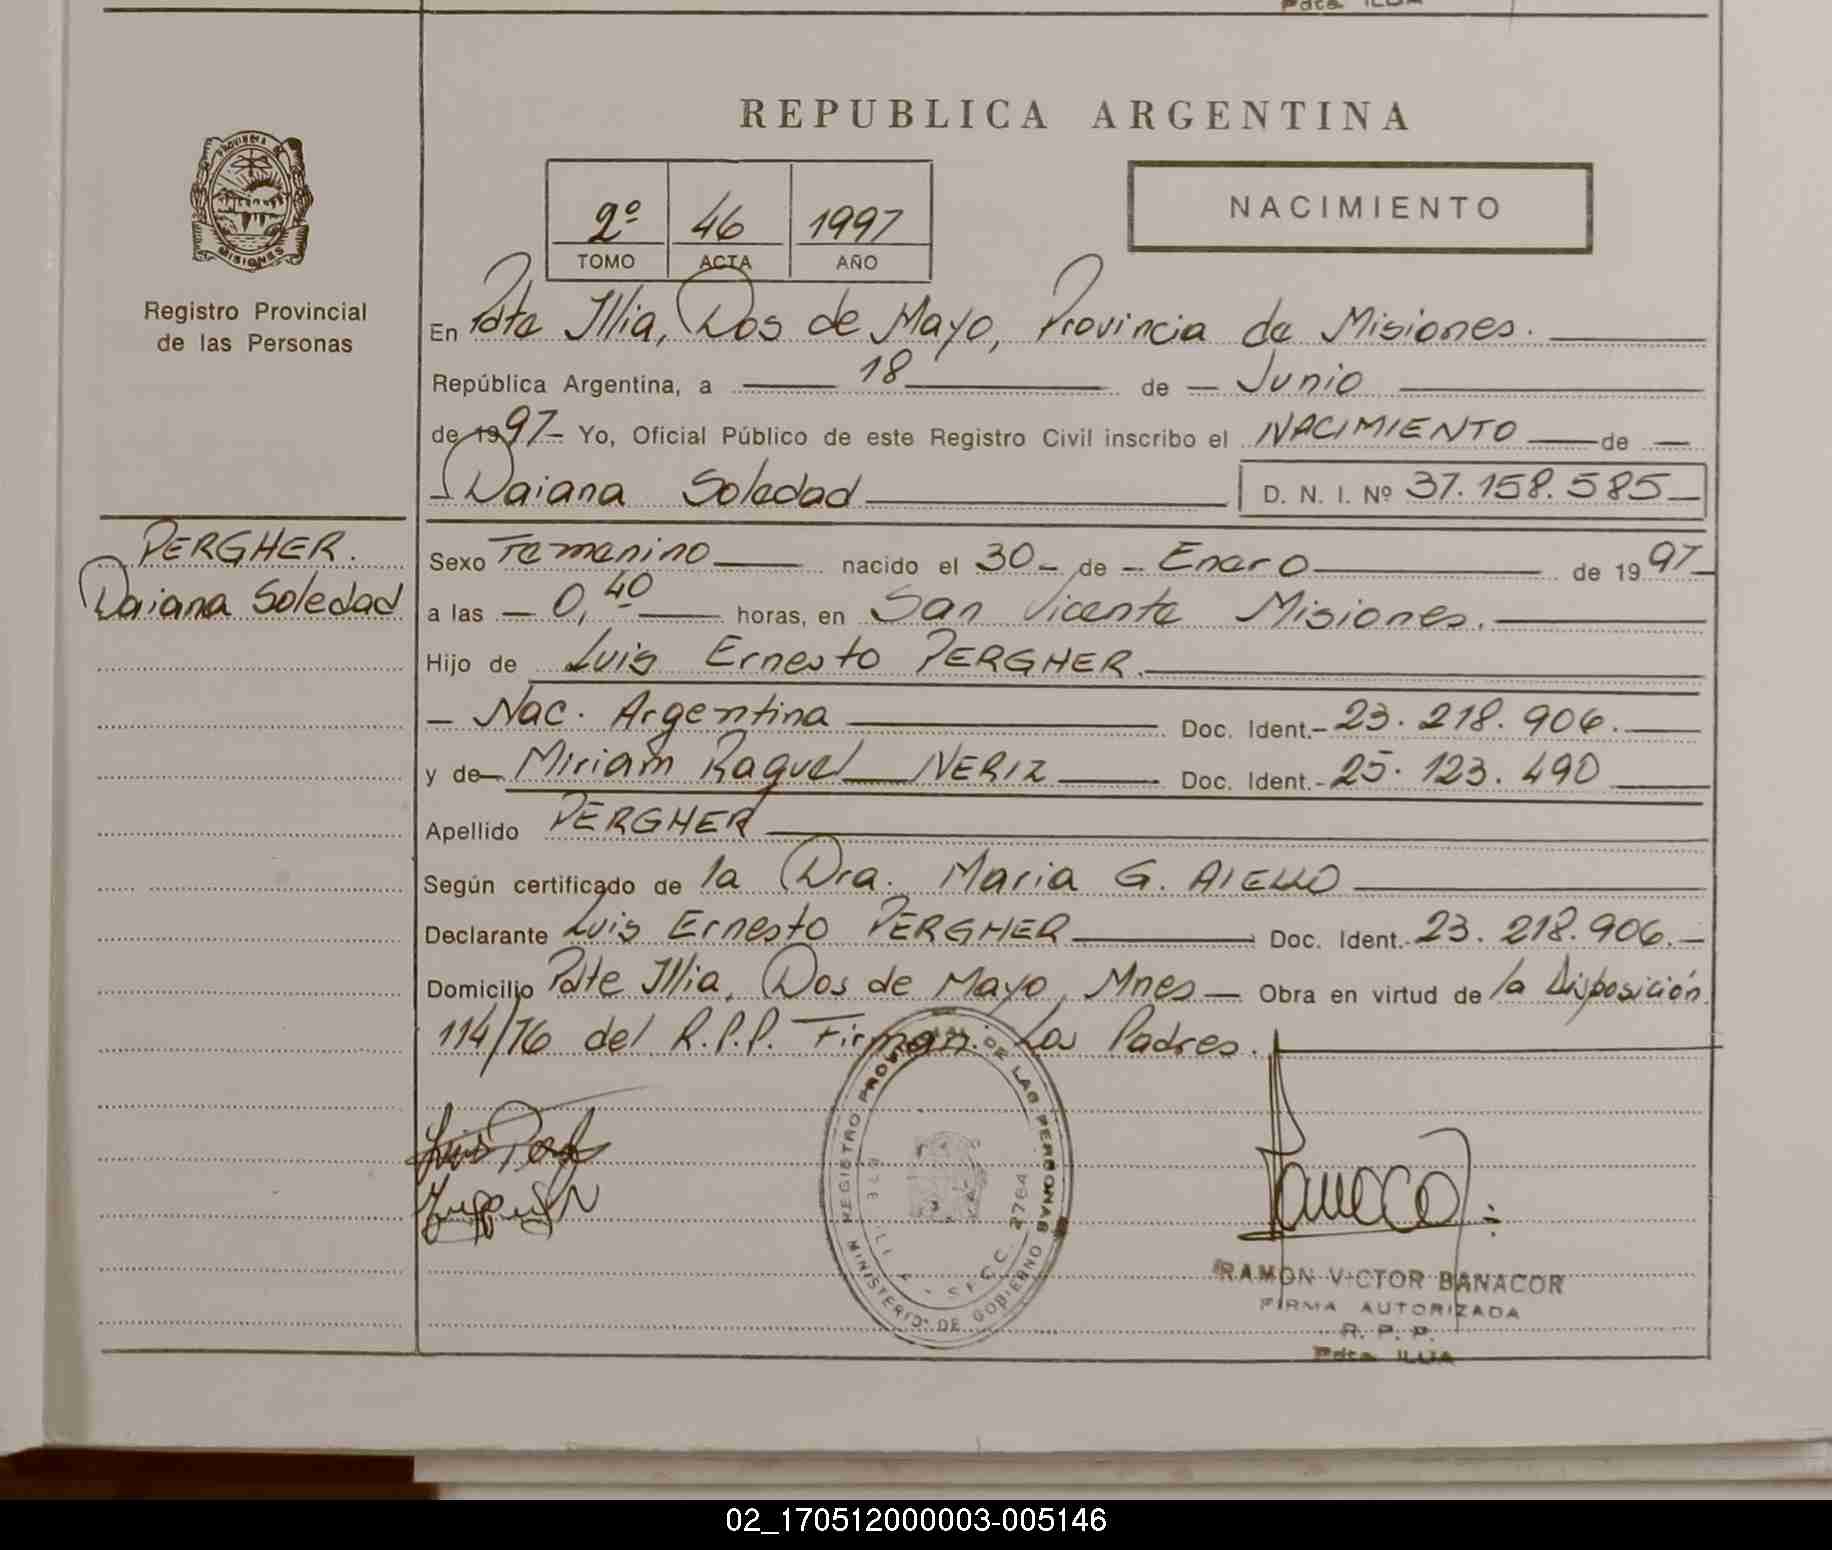 REPUBLICA ARGENTINA
2º 46 1997
TOMO ACTA AÑO
NACIMIENTO
PROVINCIA DE
MISIONES
Registro Provincial
de las Personas
En Pdte Illia, Dos de Mayo, Provincia de Misiones.
República Argentina, a 18 de Junio
de 1997 Yo, Oficial Público de este Registro Civil inscribo el NACIMIENTO de
Daiana Soledad D. N. I. Nº 37.158.585
PERGHER.
Daiana Soledad
Sexo Femenino nacido el 30 de Enero de 1997
a las 0,40 horas, en San Vicente Misiones.
Hijo de Luis Ernesto PERGHER.
Nac. Argentina Doc. Ident. 23.218.906.
y de Miriam Raquel NERIZ Doc. Ident. 25.123.490
Apellido PERGHER
Según certificado de la Dra. Maria G. AIELLO
Declarante Luis Ernesto PERGHER Doc. Ident. 23.218.906.
Domicilio Pdte Illia, Dos de Mayo, Mnes Obra en virtud de la Disposición
114/76 del R.P.P. Firman: Los Padres.
REGISTRO PROV. DE LAS PERSONAS
MINISTERIO DE GOBIERNO
2764
RAMON VICTOR BANACOR
FIRMA AUTORIZADA
R. P. P.
Pdte. ILLIA
02_170512000003-005146